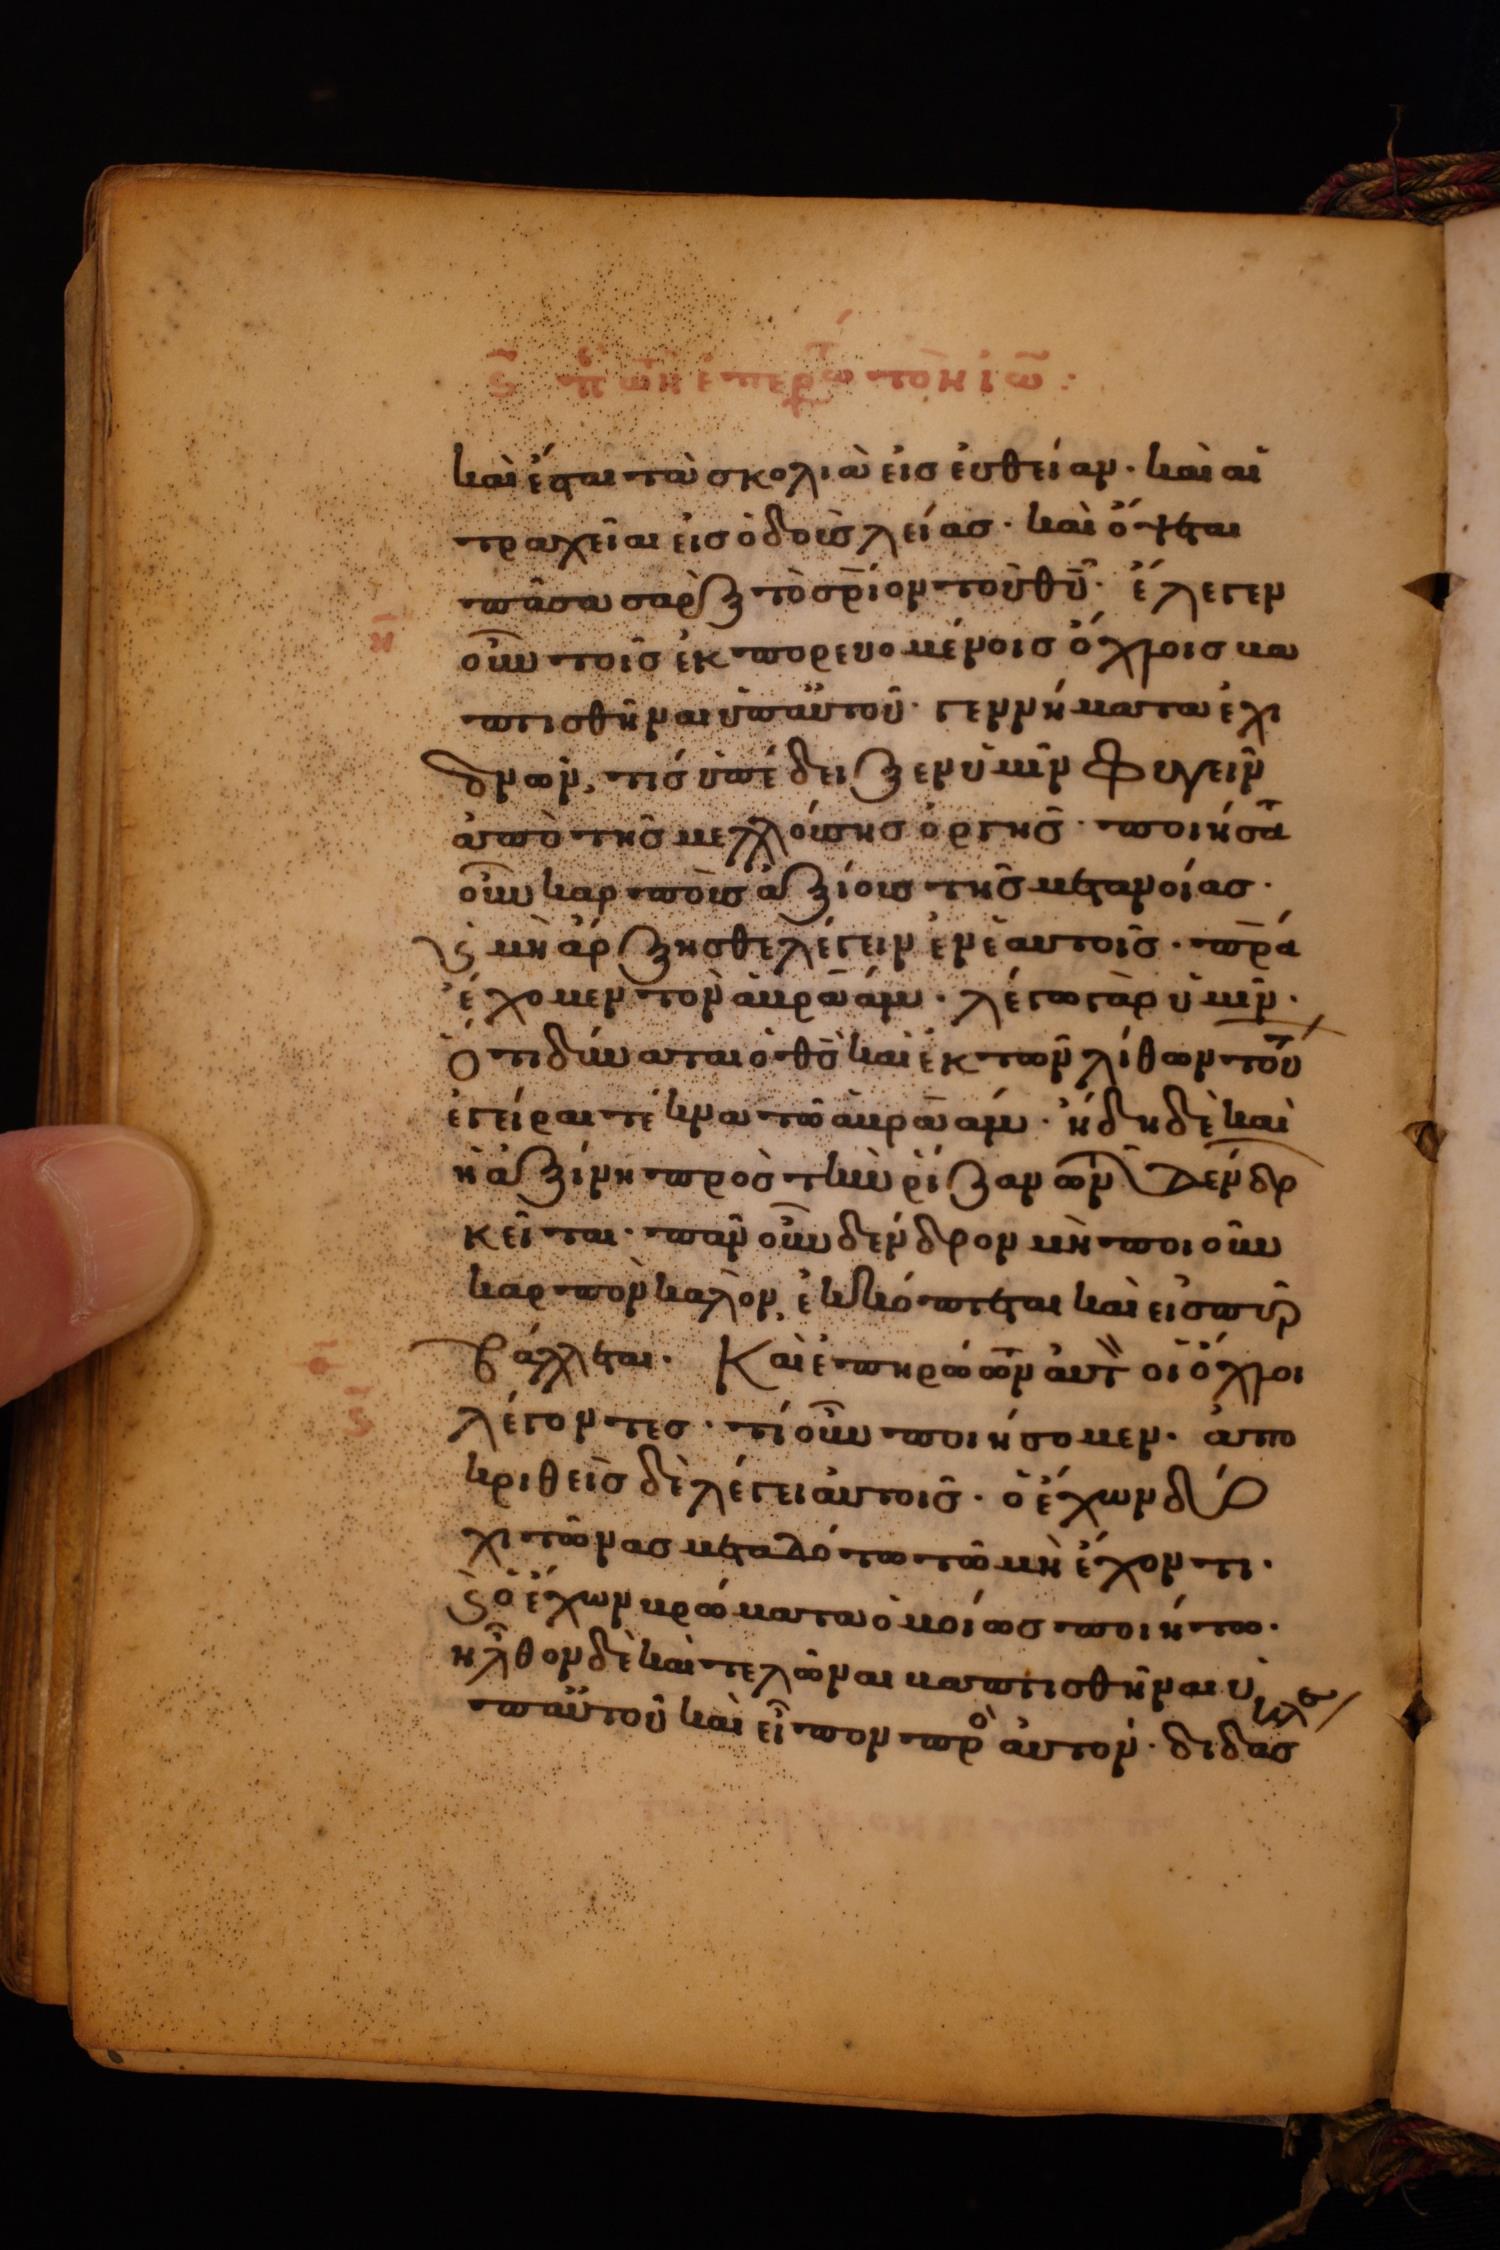 καὶ ἔσται τὰ σκολιὰ εἰσ ἐυθείαν· καὶ αἱ
τραχεῖαι εἰσ ὁδοὺσ λείασ· καὶ ὄψεται
πᾶσα σὰρξ τὸ σ̅ρ̅ιον τοῦ θ̅υ̅· ἔλεγεν
οὖν τοῖσ ἐκπορευομένοισ ὄχλοισ βα
πτισθῆναι ὑπ αὐτοῦ· γεννήματα ἐχι
δνῶν, τίσ ὑπέδειξεν ὑμῖν φυγεῖν
ἀπὸ τῆσ μελλούσησ ὀργῆσ· ποιήσατε
οὖν καρποὺσ ἀξίουσ τῆσ μετανοίασ·
ϛ μὴ ἄρξησθε λέγειν ἐν ἑαυτοῖσ· π̅ρ̅α
ἔχομεν τὸν ἀβραάμ· λέγω γὰρ ὑμῖν·
ὅτι δύναται ὁ θ̅σ̅ καὶ ἐκ τῶν λίθων τού
ἐγεῖραι τέκνα τῶ ἀβραάμ· ἤδη δὲ καὶ
ἡ ἀξίνη πρὸσ τὴν ρίζαν τῶν δένδρ
κεῖται· πᾶν οὖν δένδρον μὴ ποιοῦν
καρπὸν καλὸν, ἐκκόπτεται καὶ εἰσ πῦρ
βάλλεται· Καὶ ἐπηρώτων αὐτ οἱ ὄχλοι
λέγοντεσ· τί οὖν ποιήσομεν· ἀπο
κριθεὶσ δὲ λέγει αὐτοῖσ· ὁ ἔχων δύο
χιτῶνασ μεταδότω τῶ μὴ ἔχοντι·
ϛ ὁ ἔχων βρώματα ὁμοίωσ ποιήτω·
ἦλθον δὲ καὶ τελῶναι βαπτισθῆναι ὑ
π αὐτοῦ καὶ εἶπον πρὸ αὐτόν· διδάσ
καλε